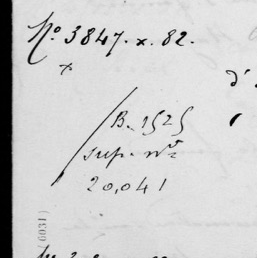 No. 3847. x. 82.
x
d'
B. 1525
sup. nrt
20,041
(6031)